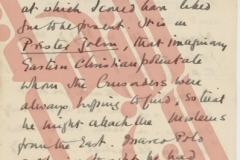 at which I could have liked
due to the present. It is in
Prester John, that imaginary
Eastern Christian potentate
whom the Crusaders were
always hoping to find, so that
he might attack the Moslems
from the East. Marco Polo
he had